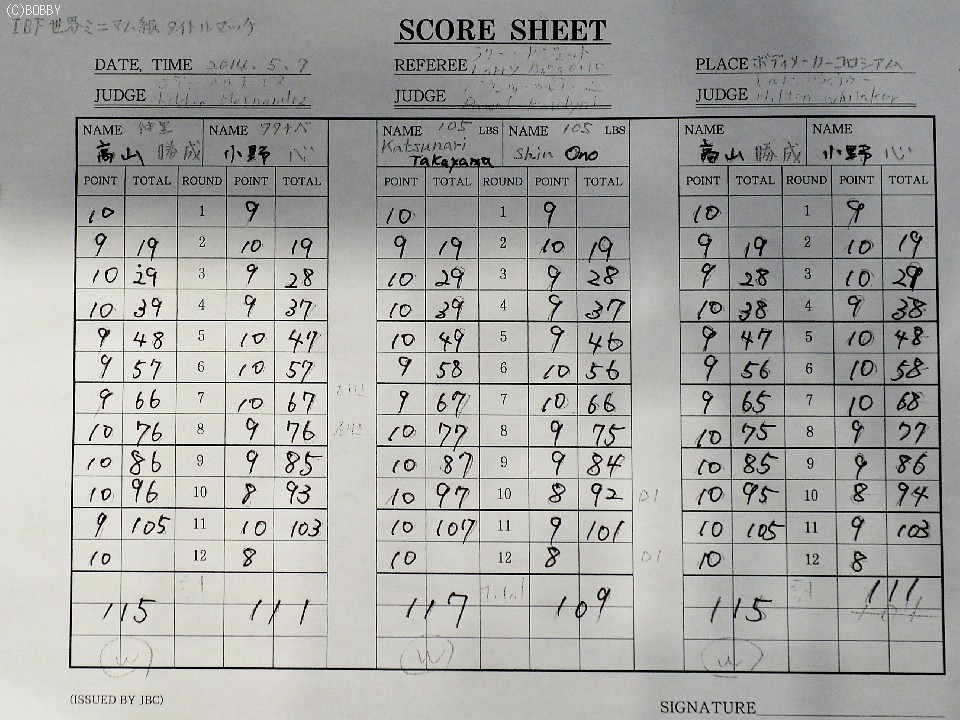 (C)BOBBY
IBF世界ミニマム級タイトルマッチ
SCORE SHEET
DATE, TIME 2014.5.7 REFEREE PLACE ボディメーカーコロシアム
JUDGE JUDGE JUDGE Milton Whitaker
NAME NAME ワタナベ NAME 105 LBS NAME 105 LBS NAME NAME
高山 勝成 小野 心 Katsunari Takayama Shin Ono 高山 勝成 小野 心
POINT TOTAL ROUND POINT TOTAL POINT TOTAL ROUND POINT TOTAL POINT TOTAL ROUND POINT TOTAL
10 1 9 10 1 9 10 1 9
9 19 2 10 19 9 19 2 10 19 9 19 2 10 19
10 29 3 9 28 10 29 3 9 28 9 28 3 10 29
10 39 4 9 37 10 39 4 9 37 10 38 4 9 38
9 48 5 10 47 10 49 5 9 46 9 47 5 10 48
9 57 6 10 57 9 58 6 10 56 9 56 6 10 58
9 66 7 10 67 9 67 7 10 66 9 65 7 10 68
10 76 8 9 76 10 77 8 9 75 10 75 8 9 77
10 86 9 9 85 10 87 9 9 84 10 85 9 9 86
10 96 10 8 93 10 97 10 8 92 D1 10 95 10 8 94
9 105 11 10 103 10 107 11 9 101 10 105 11 9 103
10 12 8 10 12 8 D1 10 12 8
115 111 117 Total 109 115 111
W W W
(ISSUED BY JBC) SIGNATURE